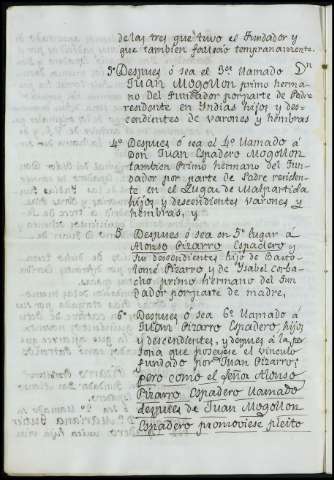 de las tres que tuvo el Fundador y
que tambien fallecio tempranamente.
3º Despues ó sea el 3er llamado Dn
Juan Mogollon primo herma-
no del Fundador por parte de Padre
residente en Indias hijos y des-
cendientes de varones y hembras
4º Despues ó sea el 4º llamado á
Don Juan Espadero Mogollon
tambien Primo hermano del Fun-
dador por parte de Padre residen-
te en el Lugar de Malpartida
hijos y descendientes varones y
hembras, y
5 Despues ó sea en 5º lugar á
Alonso Pizarro Espadero y
sus descendientes hijo de Barto-
lomé Pizarro y de Isabel Corba-
cho primo hermano del Fun-
dador por parte de madre,
6º Despues ó sea 6º llamado á
Juan Pizarro Espadero, hijos
y descendientes, y despues á la per-
sona que posayese el vinculo
fundado por Juan Pizarro;
pero como el Señor Alonso
Pizarro Espadero llamado
despues de Juan Mogollon
Espadero promoviese pleito